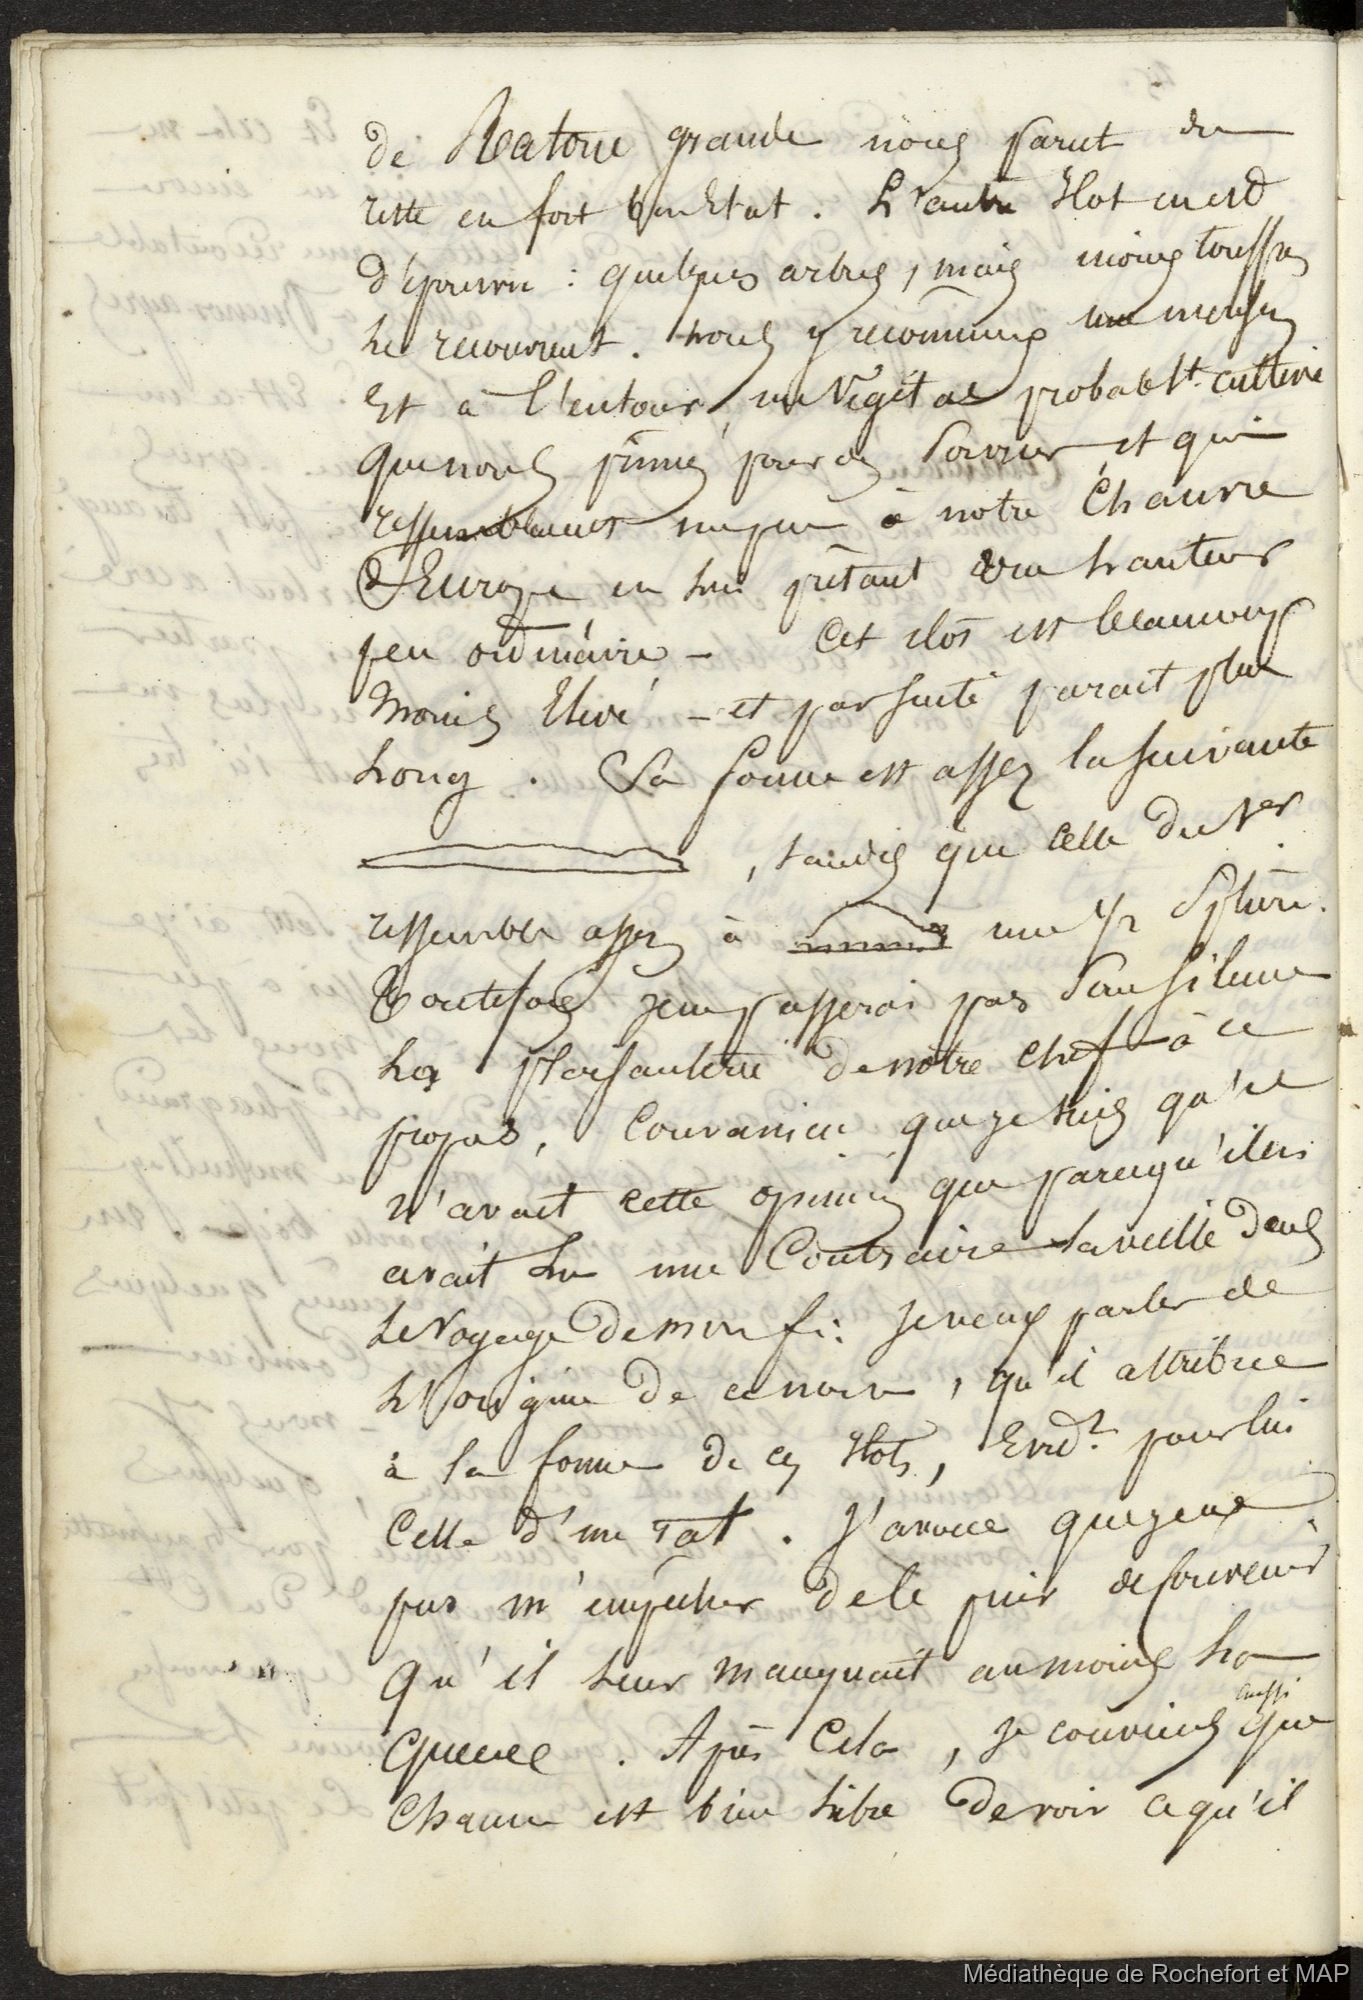 de Ratoue grande nous parut du
reste en fort bon Etat. L'autre Ilot en est
dépourvu : quelques arbres, mais moins touffus
le recouvrent. nous y reconnumes une maison
Et à l'entour, un Végétal probablt. cultivé
que nous primes pour du et qui
ressemblaient un peu à notre Chauvre
d'Europe en lui prêtant une hauteur
peu ordinaire - Cet ilot est beaucoup
moins Elevé - et par suite parait plus
Long. Sa forme est assez la suivante
, tandis que celle du 1er
ressemble assez à une 1/2 Sphère.
Toutefois je ne passerai pas Sous silence
La plaisanterie de notre chef à ce
propos, Convaincu que je suis qu'il
n'avait cette opinion que parcequ'il en
avait Lu une Contraire la veille dans
Le Voyage de : Je veux parler de
L'origine de ce nom, qu'il attribue
à la forme de ces Ilots, pour lui
Celle d'un rat. J'avoue que je ne
pus m'empêcher de le faire souvenir
Qu'il leur manquait au moins La
Queue. Après Cela, je conviens aussi que
Chacun est bien libre de voir ce qu'il
Médiathèque de Rochefort et MAP